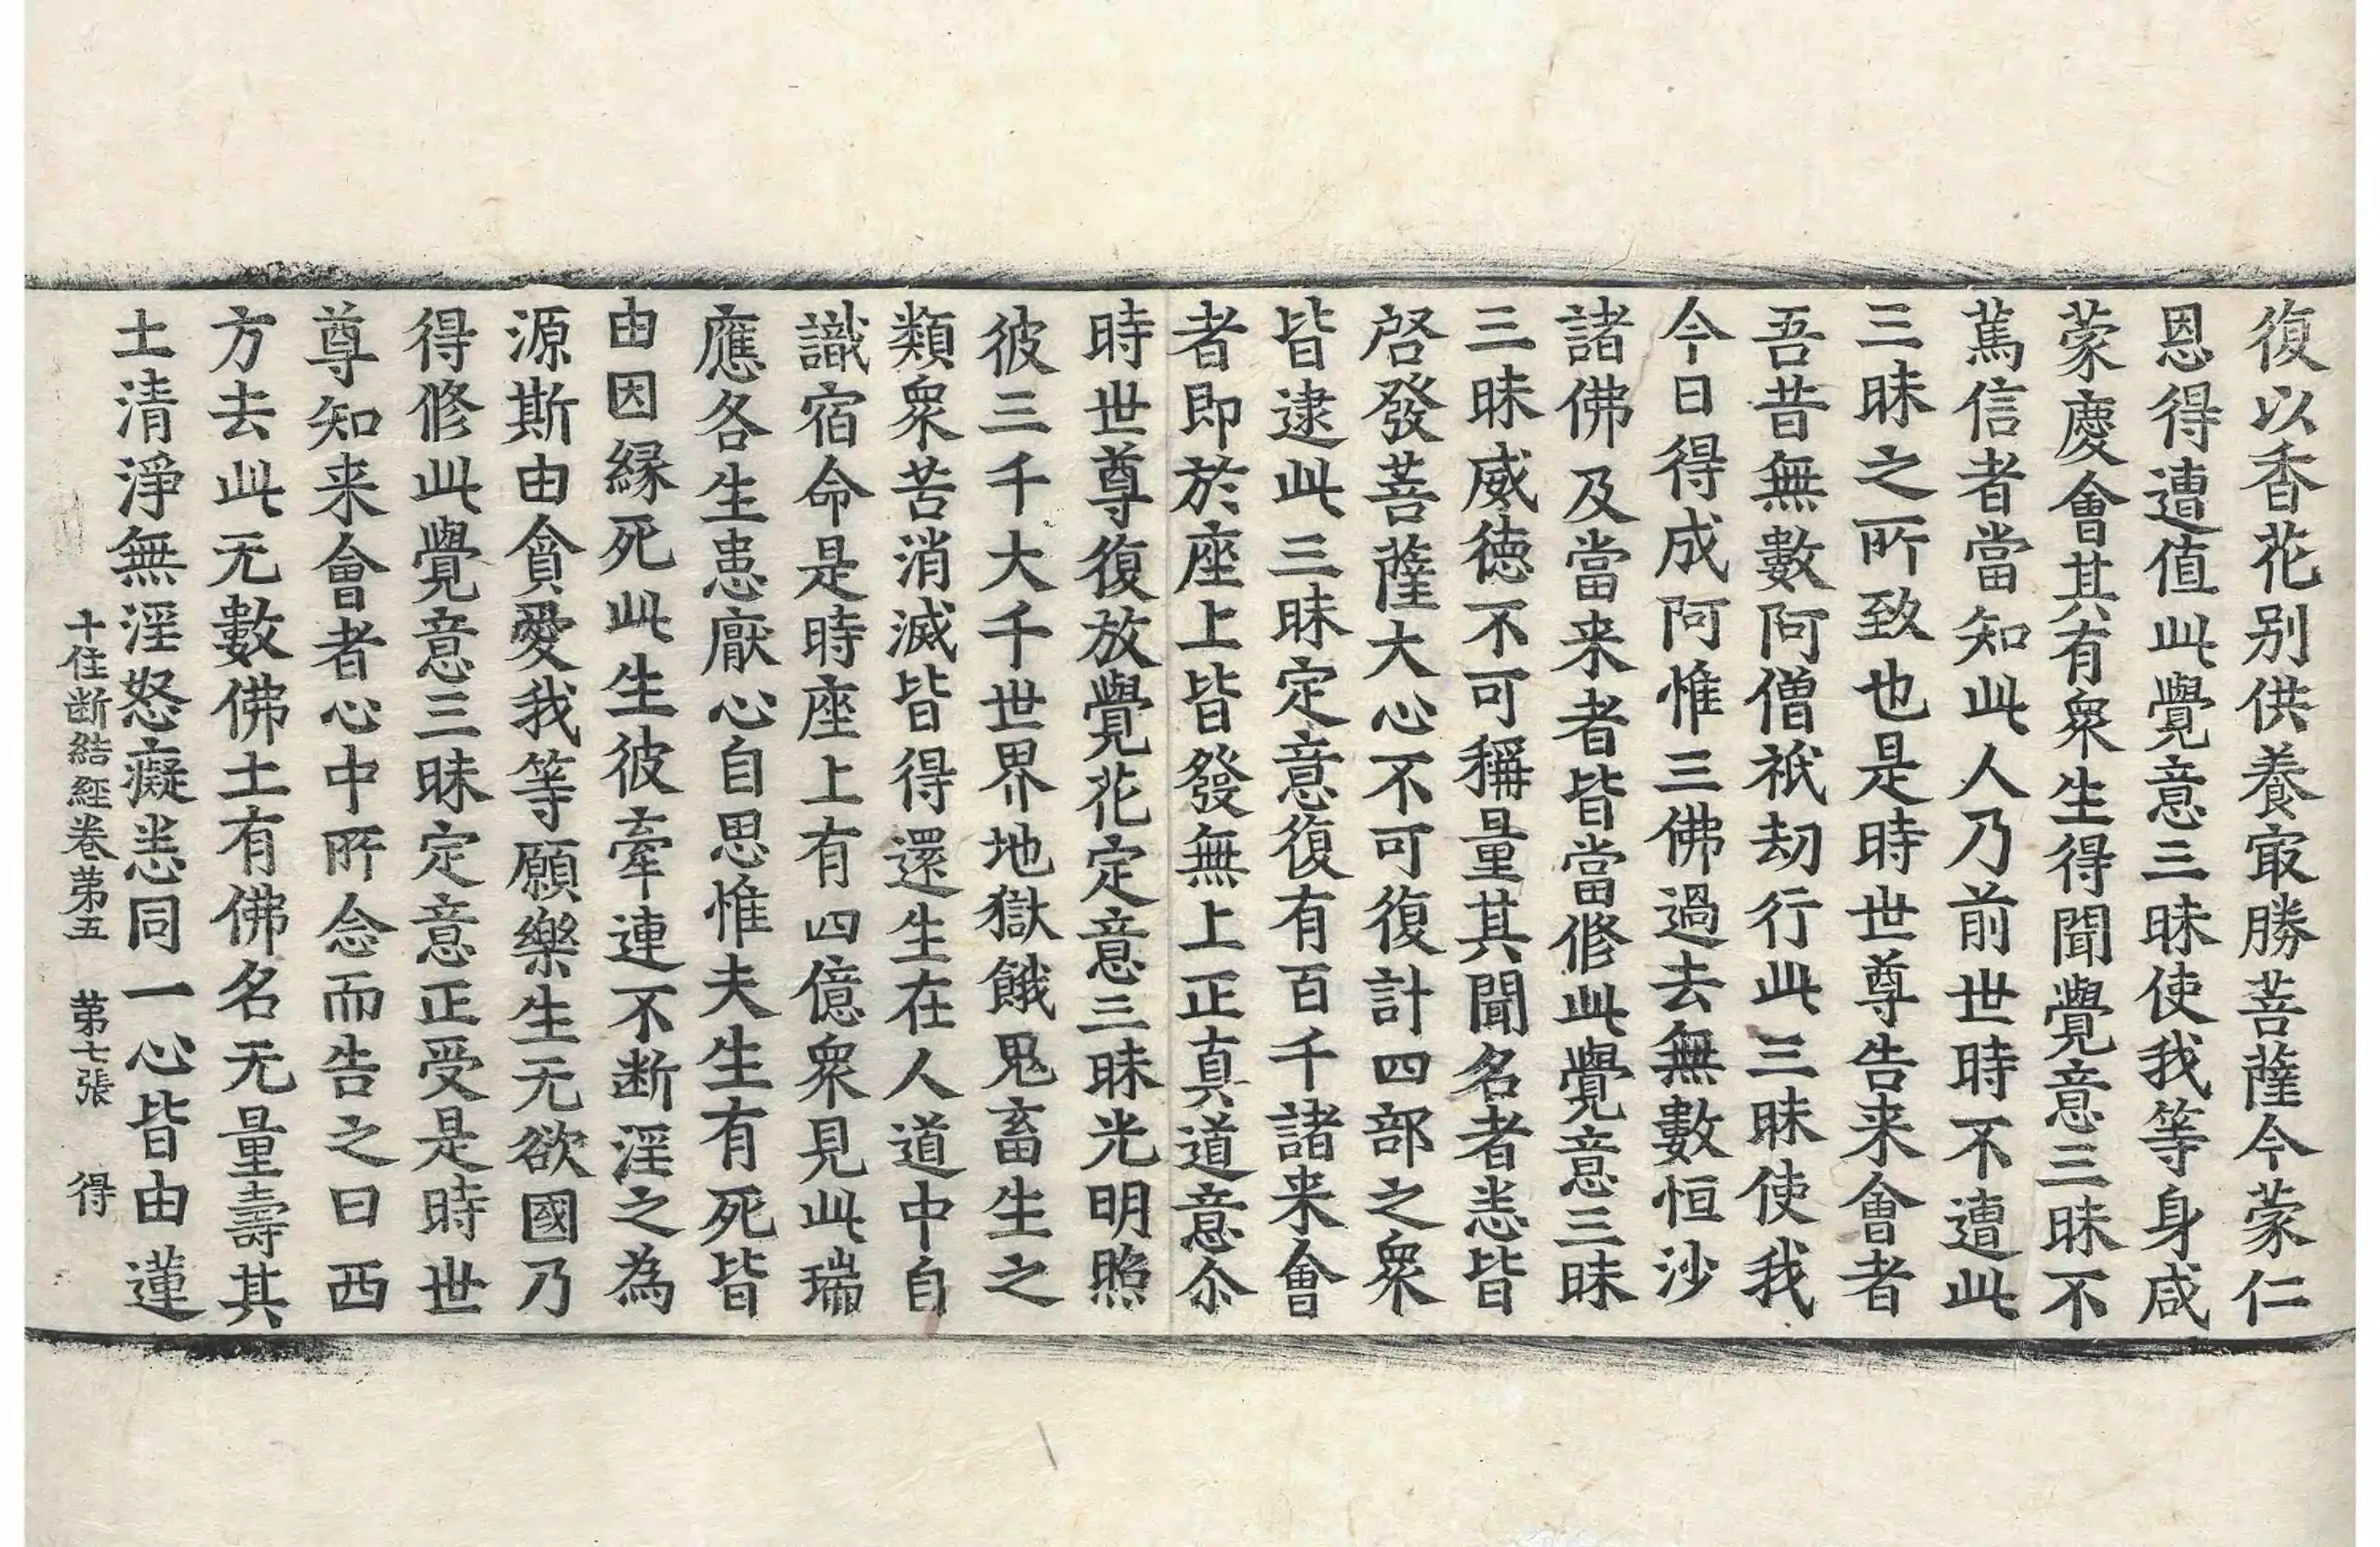 復以香花别供養㝡勝菩薩今蒙仁
恩得遭值此覺意三昧使我等身咸
蒙慶會其有衆生得聞覺意三昧不
篤信者當知此人乃前世時不遭此
三昧之所致也是時世尊告来會者
吾昔無數阿僧祇劫行此三昧使我
今日得成阿惟三佛過去無數恒沙
諸佛及當来者皆當修此覺意三昧
三昧威徳不可稱量其聞名者悉皆
啓發菩薩大心不可復計四部之衆
皆逮此三昧定意復有百千諸来會
者即於座上皆發無上正真道意尒
時世尊復放覺花定意三昧光明照
彼三千大千世界地獄餓鬼畜生之
類衆苦消滅皆得還生在人道中自
識宿命是時座上有四億衆見此瑞
應各生患厭心自思惟夫生有死皆
由因縁死此生彼牽連不断淫之為
源斯由貪愛我等願樂生无欲國乃
得修此覺意三昧定意正受是時世
尊知来會者心中所念而告之曰西
方去此无數佛土有佛名无量壽其
土清淨無淫怒癡悉同一心皆由蓮
十住断結經卷第五 第七張 得